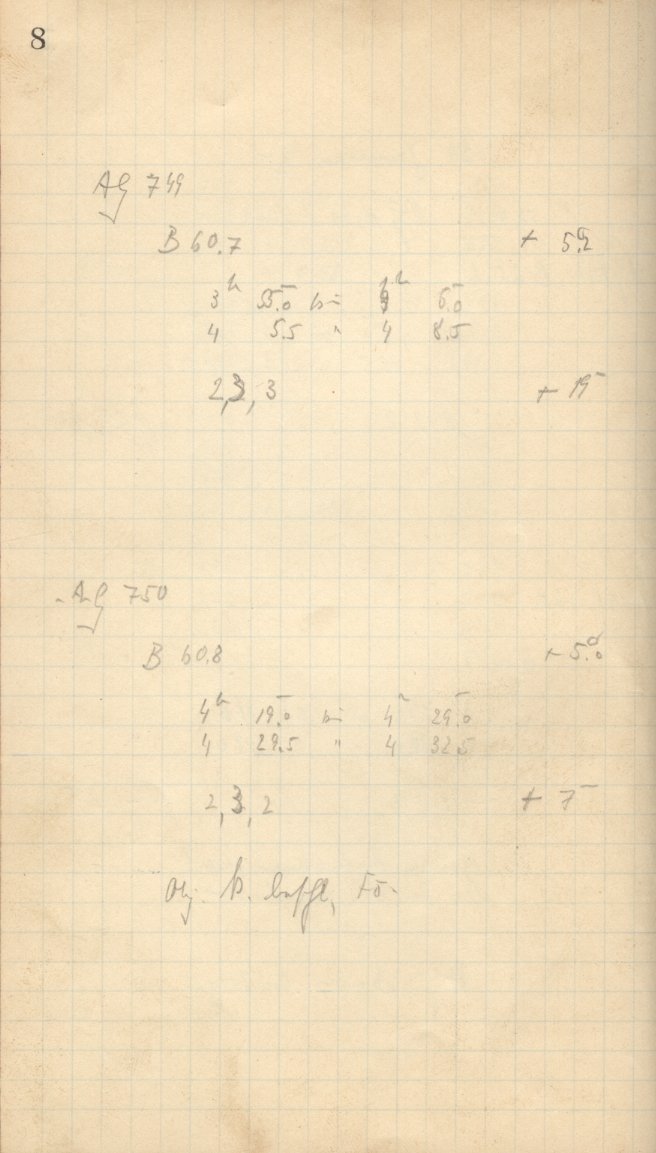 8
AG 749
B 60.7 + 5.2
3h 55.0 bis 4h 5.0
4 5.5 " 4 8.5
2, 3, 3 + 19
AG 750
B 60.8 + 5.0
4h 19.0 bis 4h 29.0
4 29.5 " 4 32.5
2, 3, 2 + 7
Obj.